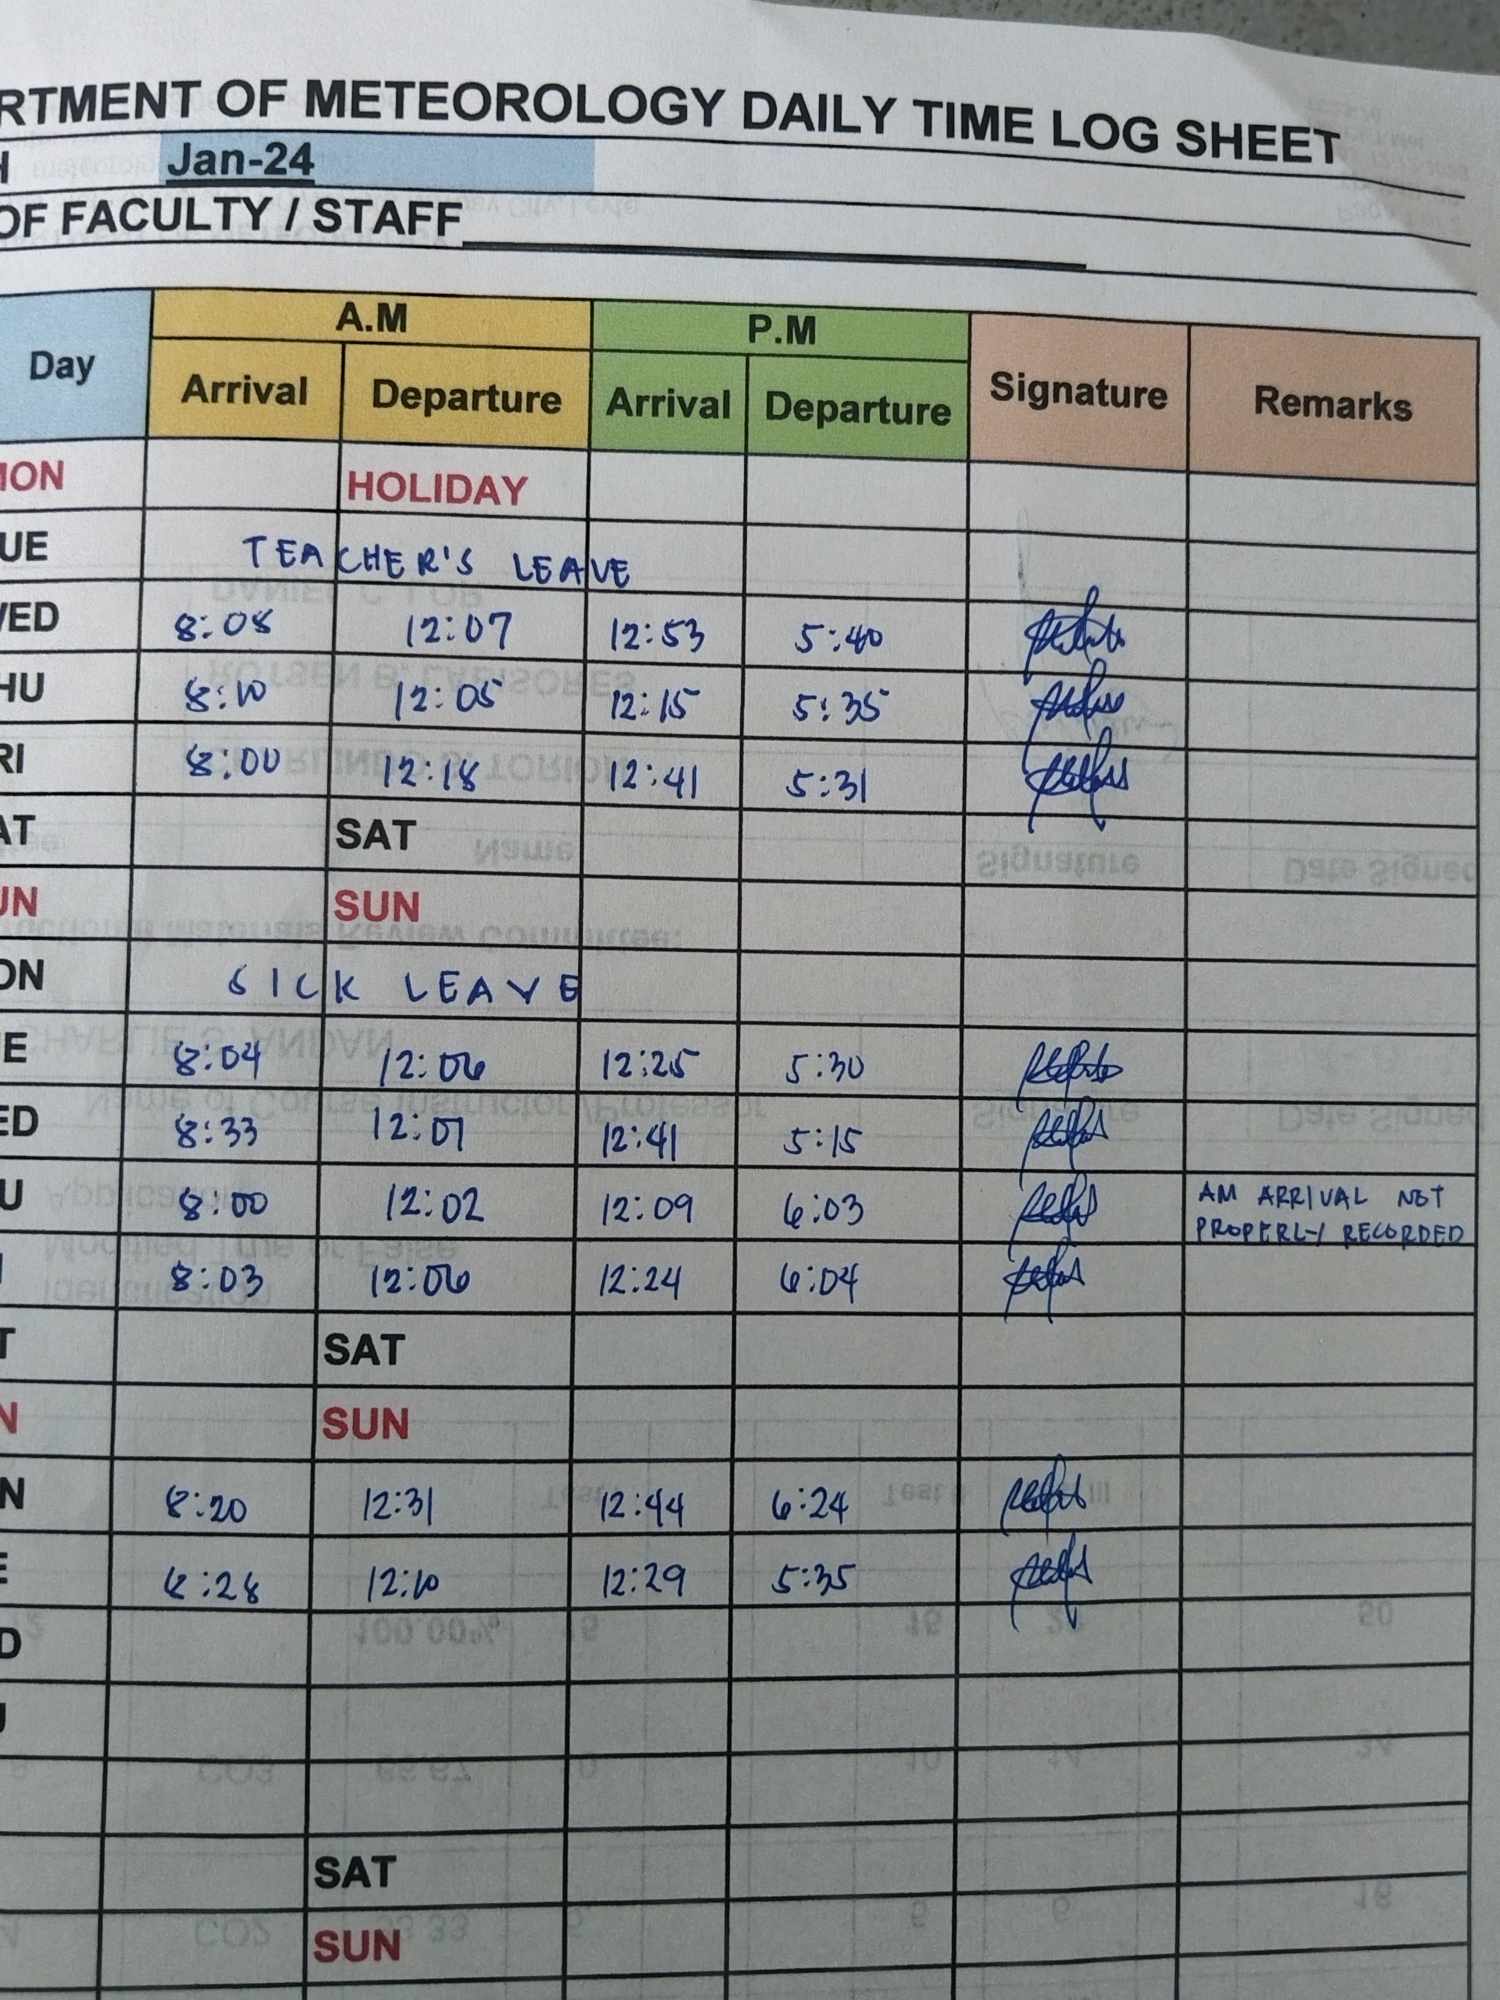 RTMENT OF METEOROLOGY DAILY TIME LOG SHEET
H Jan-24
OF FACULTY / STAFF
Day A.M P.M Signature Remarks
Arrival Departure Arrival Departure
MON HOLIDAY
UE TEACHER'S LEAVE
WED 8:08 12:07 12:53 5:40
HU 8:10 12:05 12:15 5:35
RI 8:00 12:18 12:41 5:31
AT SAT
UN SUN
ON SICK LEAVE
E 8:04 12:06 12:25 5:30
ED 8:33 12:01 12:41 5:15
U 8:00 12:02 12:09 6:03 AM ARRIVAL NOT
PROPERLY RECORDED
I 8:03 12:06 12:24 6:04
T SAT
N SUN
N 8:20 12:31 12:44 6:24
E 8:28 12:10 12:29 5:35
D
U
SAT
SUN